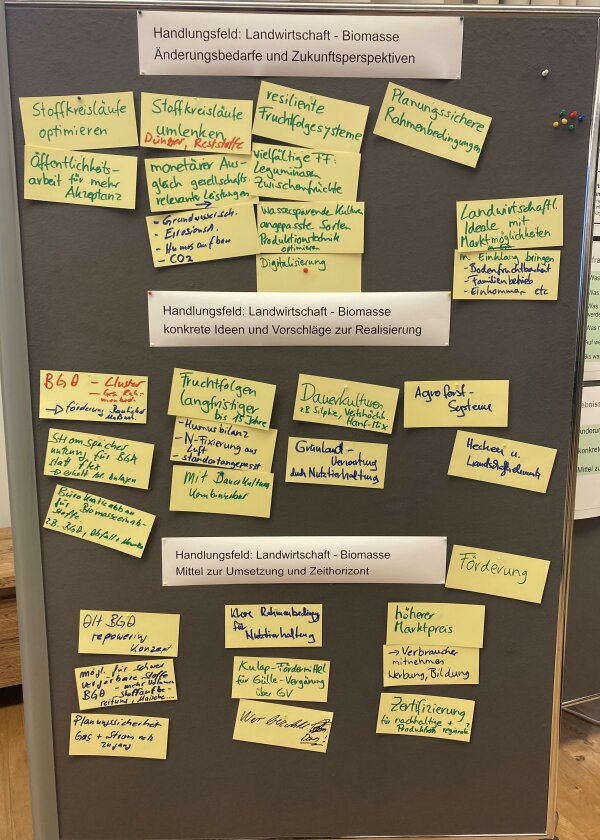 Handlungsfeld: Landwirtschaft - Biomasse
Änderungsbedarfe und Zukunftsperspektiven
Stoffkreisläufe
optimieren
Öffentlichkeits-
arbeit für mehr
Akzeptanz
Stoffkreisläufe
umlenken
Dünger, Reststoffe
monetärer Aus-
gleich gesellschafts-
relevante Leistungen
→
- Grundwassersch.
- Erosionssch.
- Humusaufbau
- CO2
resiliente
Fruchtfolgesysteme
vielfältige FF:
Leguminosen
Zwischenfrüchte
wassersparende Kulturen
angepasste Sorten
Produktionstechnik
optimieren
Digitalisierung
Planungssichere
Rahmenbedingungen
Landwirtschaftl.
Ideale mit
Marktmöglichkeiten
in Einklang bringen
- Bodenfruchtbarkeit
- Familienbetrieb
- Einkommen etc
Handlungsfeld: Landwirtschaft - Biomasse
konkrete Ideen und Vorschläge zur Realisierung
BGA - Cluster
→ Förderung
Stromspeicher
nutzung für BGA
statt flex
Anlagen
Bürokratieabbau
für
stoffe
z.B. BGA, Abfall
Fruchtfolgen
langfristiger
bis 15 Jahre
- Humusbilanz
- N-Fixierung aus
Luft
- standortangepasst
Mit Dauerkultur
kombinierbar
Dauerkulturen
z.B. Silphie,
Hanf-Mix
Grünland-
verwertung
durch Nutztierhaltung
Agroforst-
Systeme
Hecken u.
Handlungsfeld: Landwirtschaft - Biomasse
Mittel zur Umsetzung und Zeithorizont
Förderung
Alt BGA
repowering
Konzept
mögl. für schwer
vergärbare Stoffe
BGA - mehr
- Stoffaufbe-
reitung,
Planungssicherheit
Gas + Strom
zugang
klare Rahmenbeding.
für
Nutztierhaltung
Kulap-Fördermittel
für Gülle-Vergärung
über GV
Wer bezahlt
höherer
Marktpreis
→ Verbraucher
mitnehmen
Werbung, Bildung
Zertifizierung
für nachhaltige +
Produktion regionale
?